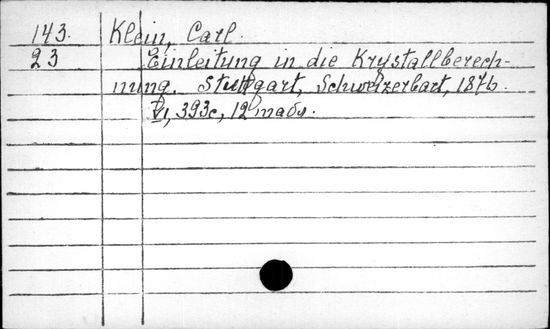 143. Klein, Carl.
23 Einleitung in die Krystallberech-
nung. Stuttgart, Schweizerbart, 1876.
VI, 393c, 12 табл.